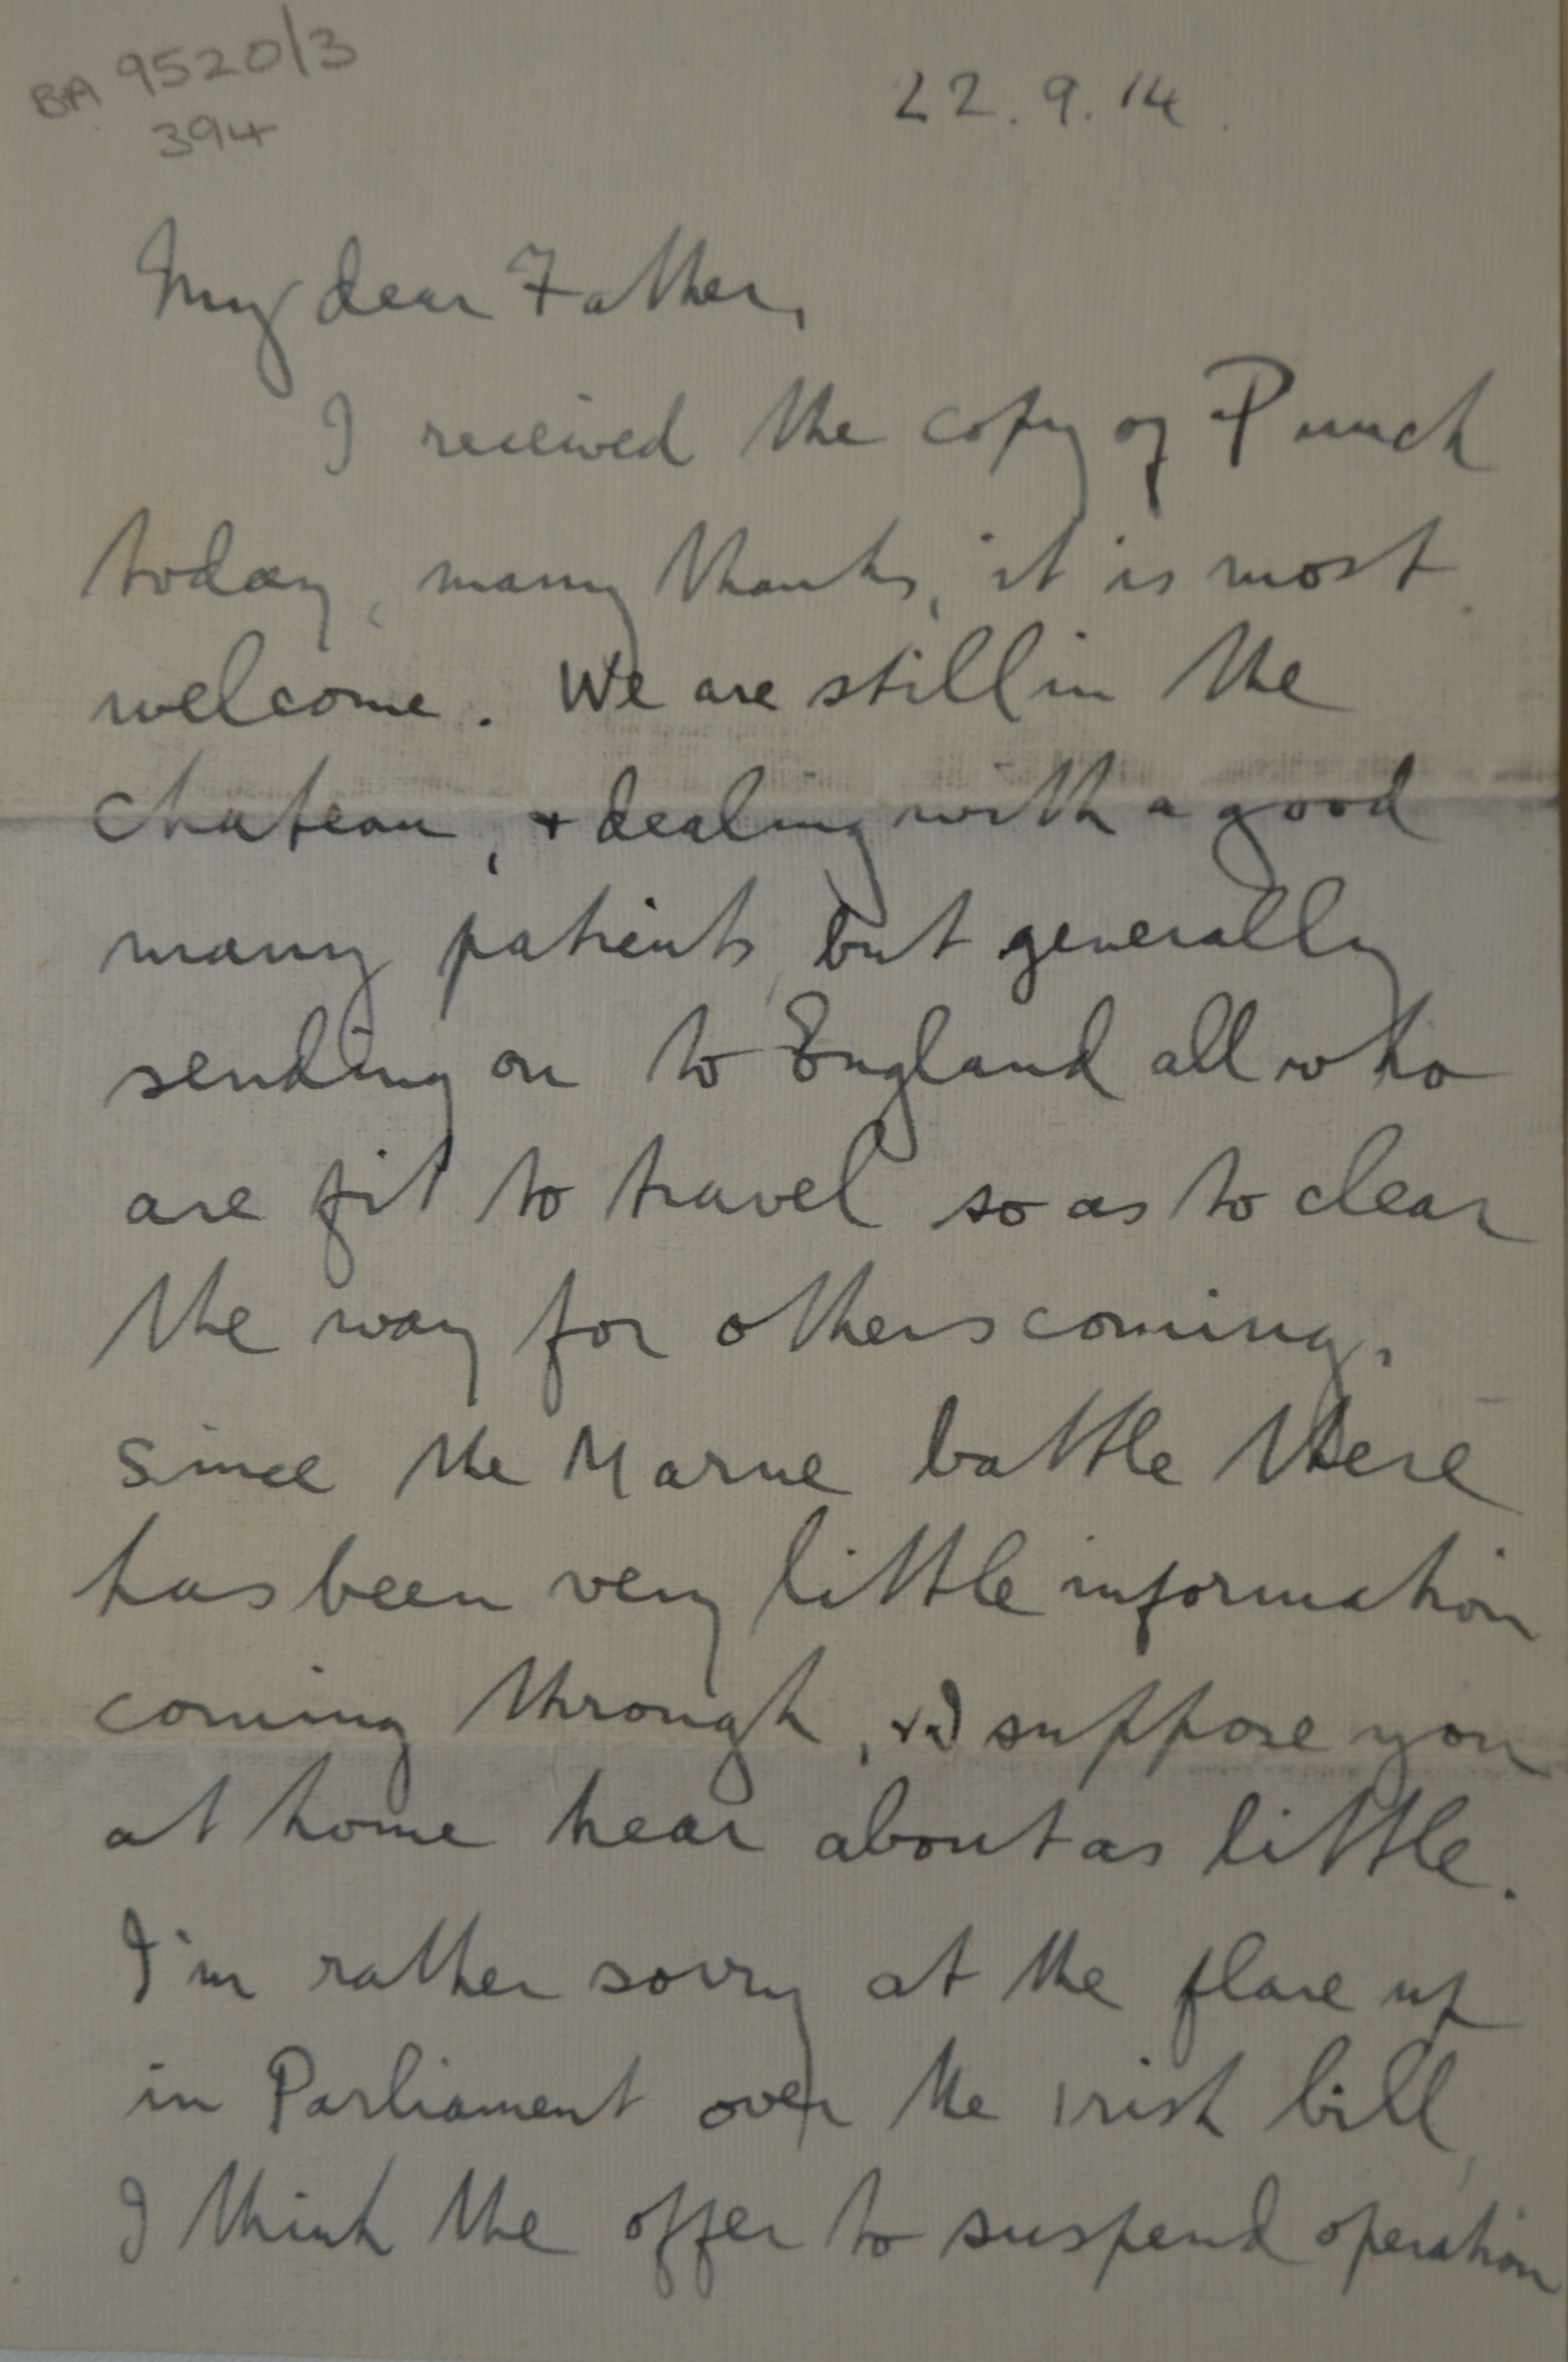 BA 9520/3
394
22.9.14.
My dear Father,
I received the copy of Punch
today, many thanks, it is most
welcome. We are still in the
chateau, + dealing with a good
many patients, but generally
sending on to England all who
are fit to travel so as to clear
the way for others coming.
Since the Marne battle there
has been very little information
coming through, + I suppose you
at home hear about as little.
I'm rather sorry at the flare up
in Parliament over the Irish bill,
I think the offer to suspend operation